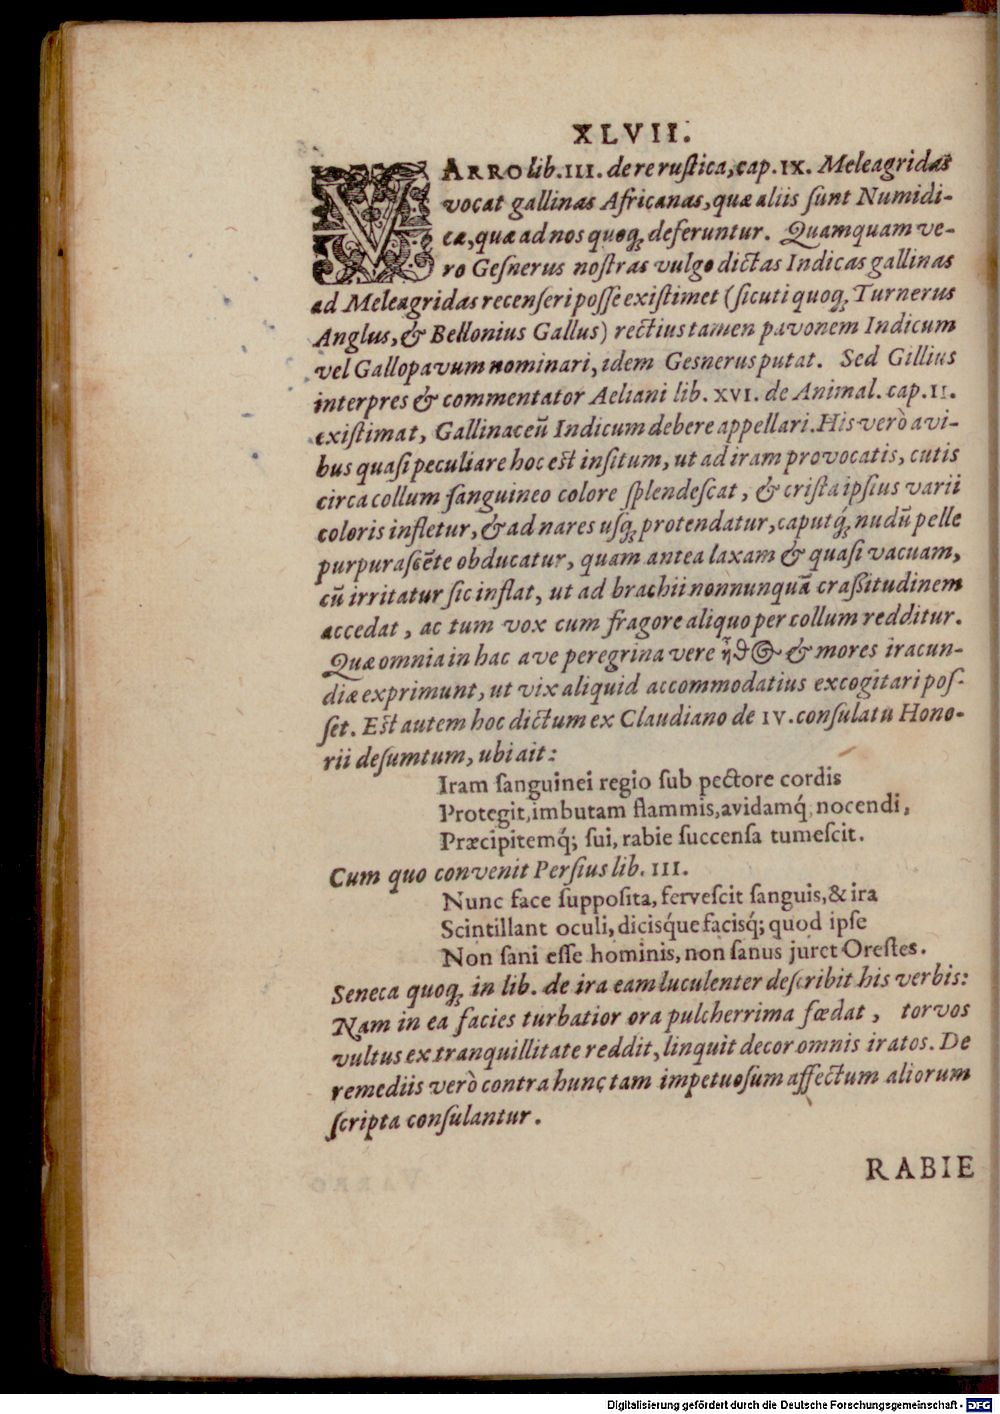 XLVII.
VARRO lib. III. de re rustica, cap. IX. Meleagridas
vocat gallinas Africanas, quæ aliis sunt Numidi-
cæ, quæ ad nos quoq; deferuntur. Quamquam ve-
ro Gesnerus nostras vulgo dictas Indicas gallinas
ad Meleagridas recenseri posse existimet (sicuti quoq; Turnerus
Anglus, & Bellonius Gallus) rectius tamen pavonem Indicum
vel Gallopavum nominari, idem Gesnerus putat. Sed Gillius
interpres & commentator Aeliani lib. XVI. de Animal. cap. II.
existimat, Gallinaceū Indicum debere appellari. His verò avi-
bus quasi peculiare hoc est insitum, ut ad iram provocatis, cutis
circa collum sanguineo colore splendescat, & crista ipsius varii
coloris infletur, & ad nares usq; protendatur, caputq́; nudū pelle
purpurascēte obducatur, quam antea laxam & quasi vacuam,
cū irritatur sic inflat, ut ad brachii nonnunquā crassitudinem
accedat, ac tum vox cum fragore aliquo per collum redditur.
Quæ omnia in hac ave peregrina vere ἦθος & mores iracun-
diæ exprimunt, ut vix aliquid accommodatius excogitari pos-
set. Est autem hoc dictum ex Claudiano de IV. consulatu Hono-
rii desumtum, ubi ait:
Iram sanguinei regio sub pectore cordis
Protegit, imbutam flammis, avidamq́; nocendi,
Præcipitemq́; sui, rabie succensa tumescit.
Cum quo convenit Persius lib. III.
Nunc face supposita, fervescit sanguis, & ira
Scintillant oculi, dicisq́ue facisq́; quod ipse
Non sani esse hominis, non sanus juret Orestes.
Seneca quoq; in lib. de ira eam luculenter describit his verbis:
Nam in ea facies turbatior ora pulcherrima fœdat, torvos
vultus ex tranquillitate reddit, linquit decor omnis iratos. De
remediis verò contra hunc tam impetuosum affectum aliorum
scripta consulantur.
RABIE
Digitalisierung gefördert durch die Deutsche Forschungsgemeinschaft - DFG